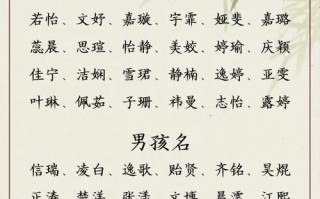 若怡、文妤、嘉璇、宇霏、娅斐、嘉璐
蕊晨、思瑄、怡静、美姣、婷瑜、庆颖
佳宁、洁娴、雪珺、静楠、逸婷、亚雯
叶琳、佩茹、子珊、祎曼、志怡、露婷
男孩名
信瑞、凌白、逸歌、贻贤、齐铭、昊焜